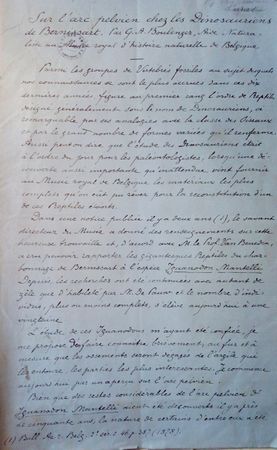 Sur l'arc pelvien chez les Dinosauriens
de Bernissart. Par G. A. Boulenger, Aide-Natura-
liste au Musée royal d'histoire naturelle de Belgique
Parmi les groupes de Vertébrés fossiles au sujet desquels
nos connaissances se sont le plus accrues dans ces dix
dernières années, figure au premier rang l'ordre de Reptiles
désigné généralement sous le nom de Dinosauriens, si
remarquable par ses analogies avec la classe des Oiseaux
et par le grand nombre de formes variées qu'il renferme.
Aussi peut-on dire que l'étude des Dinosauriens était
à l'ordre du jour pour les paléontologistes, lorsqu'une dé-
couverte aussi importante qu'inattendue, vint fournir
au Musée royal de Belgique les matériaux les plus
complets qu'on eût pu rêver pour la reconstitution d'un
de ces Reptiles éteints.
Dans une notice publiée il y a deux ans (1), le savant
directeur du Musée a donné des renseignements sur cette
heureuse trouvaille et, d'accord avec M. le Prof. Van Beneden,
a cru pouvoir rapporter les gigantesques Reptiles du char-
bonnage de Bernissart à l'espèce Iguanodon Mantelli.
Depuis, les recherches ont été continuées avec autant de
zèle que d'habileté par M. De Pauw et le nombre d'indi-
vidus, plus ou moins complets, s'élève aujourd'hui à une
vingtaine.
L'étude de ces Iguanodons m'ayant été confiée, je
me propose de faire connaître, brièvement, au fur et à
mesure que les ossements seront dégagés de l'argile qui
les entoure, les parties les plus intéressantes. Je commence
aujourd'hui par un aperçu sur l'arc pelvien.
Bien que des restes considérables de l'arc pelvien de
Iguanodon Mantelli aient été découverts il y a près
de cinquante ans, la nature de certains d'entre eux a été
(1) Bull. Ac. r. Belg. 2e sér. t. 46 p. 387 (1878).